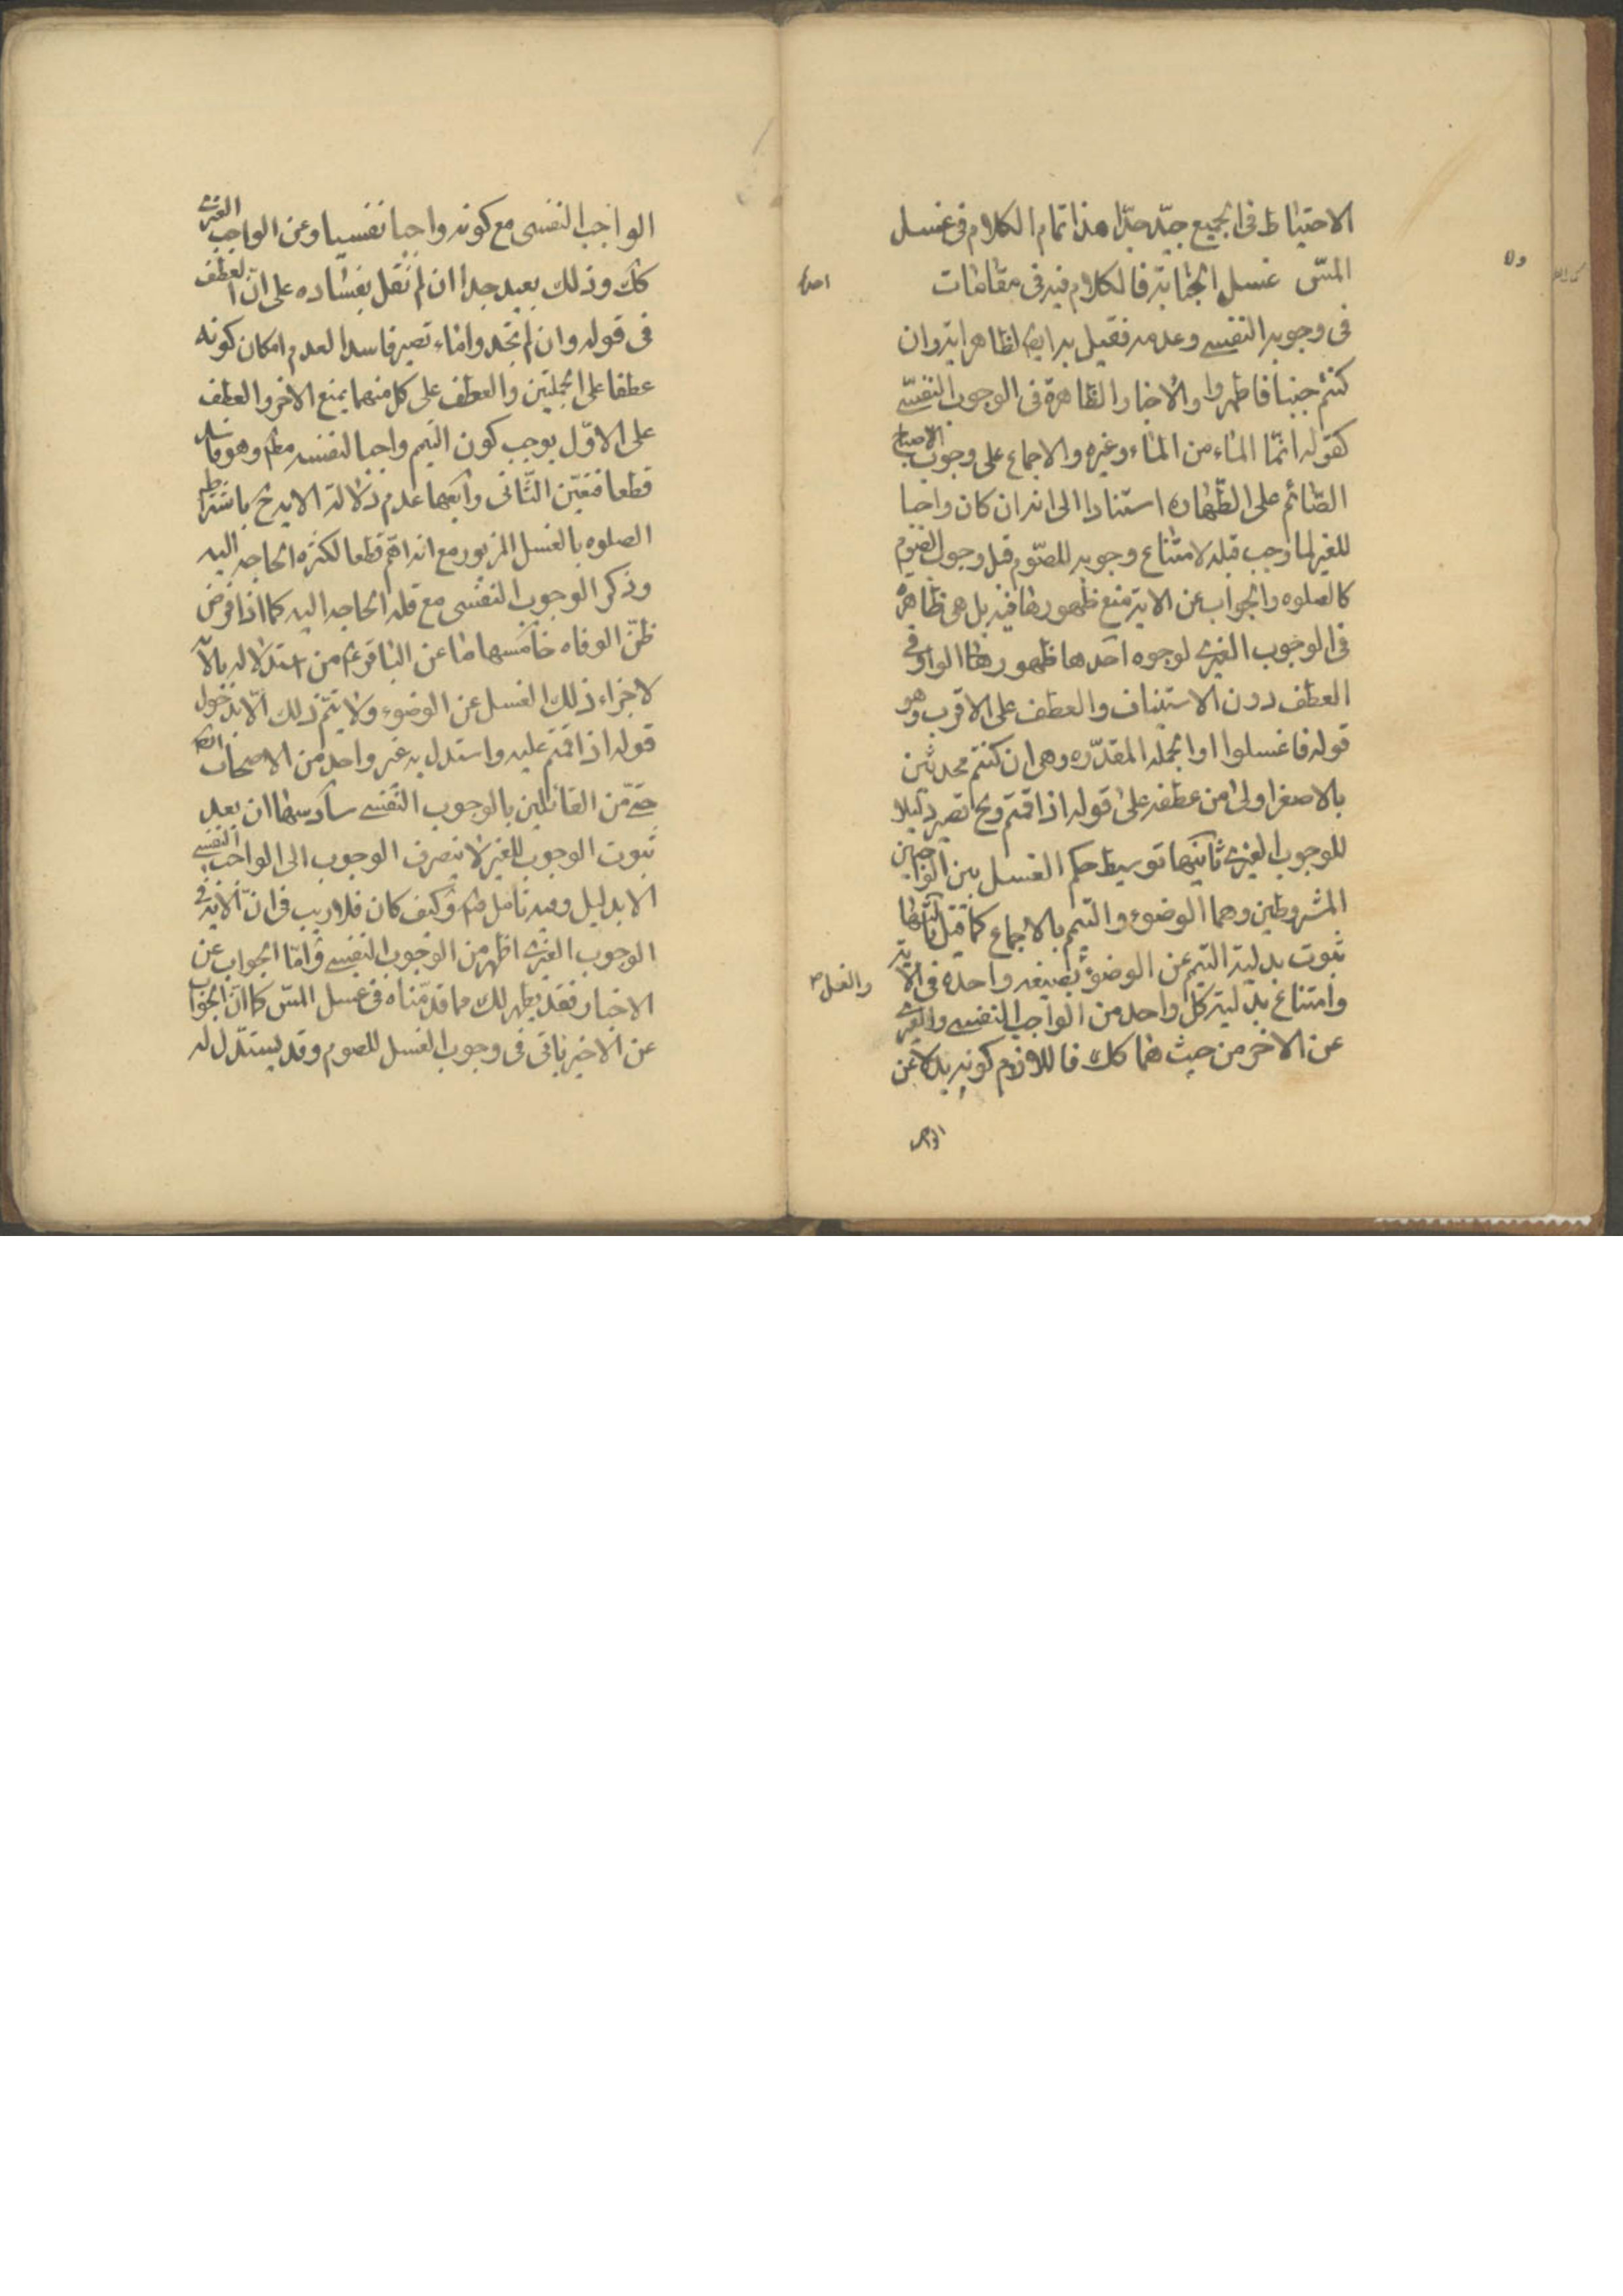 الاحتياط فى الجميع جيّد جدّا هذا تمام الكلام فى غسل
المسّ غسل الجنابة فالكلام فيه فى مقامات
احدها
فى وجوبه النفسى وعدمه فقيل به ايضا لظاهر اية وان
كنتم جنبا فاطهروا والاخبار الظاهرة فى الوجوب النفسى
كقوله انّما الماء من الماء وغيره والاجماع على وجوب الاصباح
الصّائم على الطّهاره استنادا الى انه ان كان واجبا
للغير لما وجب قبله لامتناع وجوبه للصّوم قبل وجوب الصّوم
كالصلوه والجواب عن الاية منع ظهورها فيه بل هى ظاهرة
فى الوجوب الغيرى لوجوه احدها ظهور هذا الواو فى
العطف دون الاستيناف والعطف على الاقرب وهو
قوله فاغسلوا او الجمله المقدّره وهى ان كنتم محدثين
بالاصغر اولى من عطفه على قوله اذا قمتم وح تصير دليلا
للوجوب الغيرى ثانيها توسيط حكم الغسل بين الواجبين
المشروطين وهما الوضوء والتيمم بالاجماع كما قيل ثالثها
ثبوت بدلية التيمم عن الوضوء بصيغه واحده فى الاية
والغسل صح
وامتناع بدلية كل واحد من الواجب النفسى والغيرى
عن الاخر من حيث هما كك فاللازم كونه بدلا عن
الواجب
الواجب النفسى مع كونه واجبا نفسيا وعن الواجب الغيرى
كك وذلك بعيد جدا ان لم نقل بفساده على انّ العطف
فى قوله وان لم تجدوا ماء تصير فاسدا لعدم امكان كونه
عطفا على الجملتين والعطف على كل منهما يمنع الاخر والعطف
على الاوّل يوجب كون التيمم واجبا لنفسه مط وهو فاسد
قطعا فتعيّن الثّانى رابعها عدم دلالة الاية ح باشتراط
الصلوه بالغسل المزبور مع انه اهم قطعا لكثره الحاجه اليه
وذكر الوجوب النفسى مع قله الحاجه اليه كما اذا فرض
ظنّ الوفاه خامسها ما عن الباقر ع من استدلاله بالاية
لاجزاء ذلك الغسل عن الوضوء ولا يتم ذلك الّا بدخول
قوله اذا قمتم عليه واستدل به غير واحد من الاصحاب
حتى من القائلين بالوجوب النفسى سادسها ان بعد
ثبوت الوجوب للغير لا ينصرف الوجوب الى الواجب النفسى
الا بدليل وفيه تامل وكيف كان فلا ريب فى انّ الاية فى
الوجوب الغيرى اظهر من الوجوب النفسى وامّا الجواب عن
الاخبار فقد يظهر لك مما قدّمناه فى غسل المسّ كما انّ الجواب
عن الاخير ياتى فى وجوب الغسل للصوم وقد يستدّل له